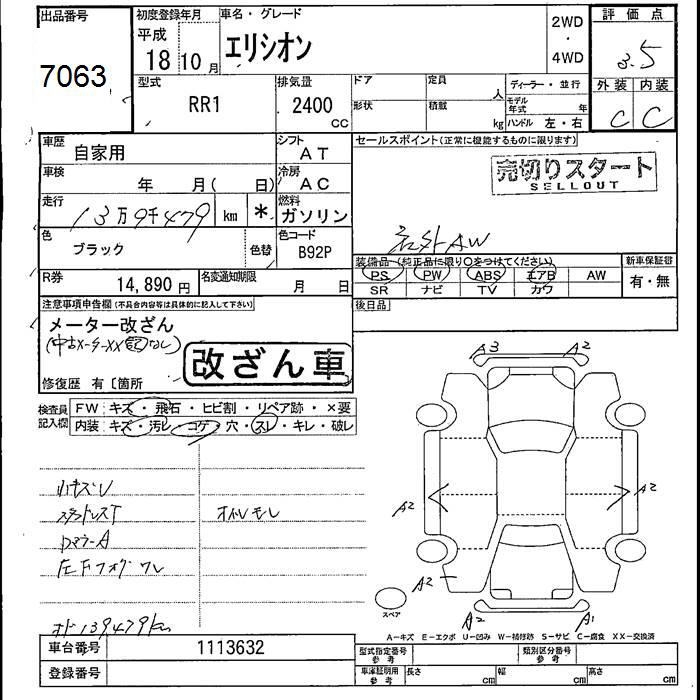 出品番号
7063
初度登録年月
平成
18 10 月
車名・グレード
エリシオン
2WD
・
4WD
評価点
3.5
外装 内装
C C
型式
RR1
排気量
2400
CC
ドア
形状
定員
人
積載
kg
ディーラー・並行
モデル年式 年
ハンドル 左・右
車歴
自家用
シフト
AT
車検
年 月( 日)
冷房
AC
走行
13万9千479 km *
燃料
ガソリン
色
ブラック
色替
色コード
B92P
R券
14,890 円
名変通知期限
月 日
セールスポイント(正常に機能するものに限ります)
売切りスタート
SELLOUT
社外AW
装備品 (純正品に限り○をつけてください)
PS PW ABS エアB AW
SR ナビ TV カワ
新車保証書
有・無
後日品
注意事項申告欄(不具合内容等は具体的に記入して下さい)
メーター改ざん
改ざん車
修復歴 有〔箇所
検査員
記入欄
FW キズ・飛石・ヒビ割・リペア跡・×要
内装 キズ・汚レ・コゲ・穴・スレ・キレ・破レ
小キズU
オイルモレ
左Fフォグワレ
オド139479km
A3 A2
A2 A2
A2
A2 A1
スペア
A-キズ E-エクボ U-凹み W-補修跡 S-サビ C-腐食 XX-交換済
車台番号
1113632
登録番号
型式指定番号
参考
類別区分番号
参考
車庫証明用
参考
長さ cm
幅 cm
高さ cm